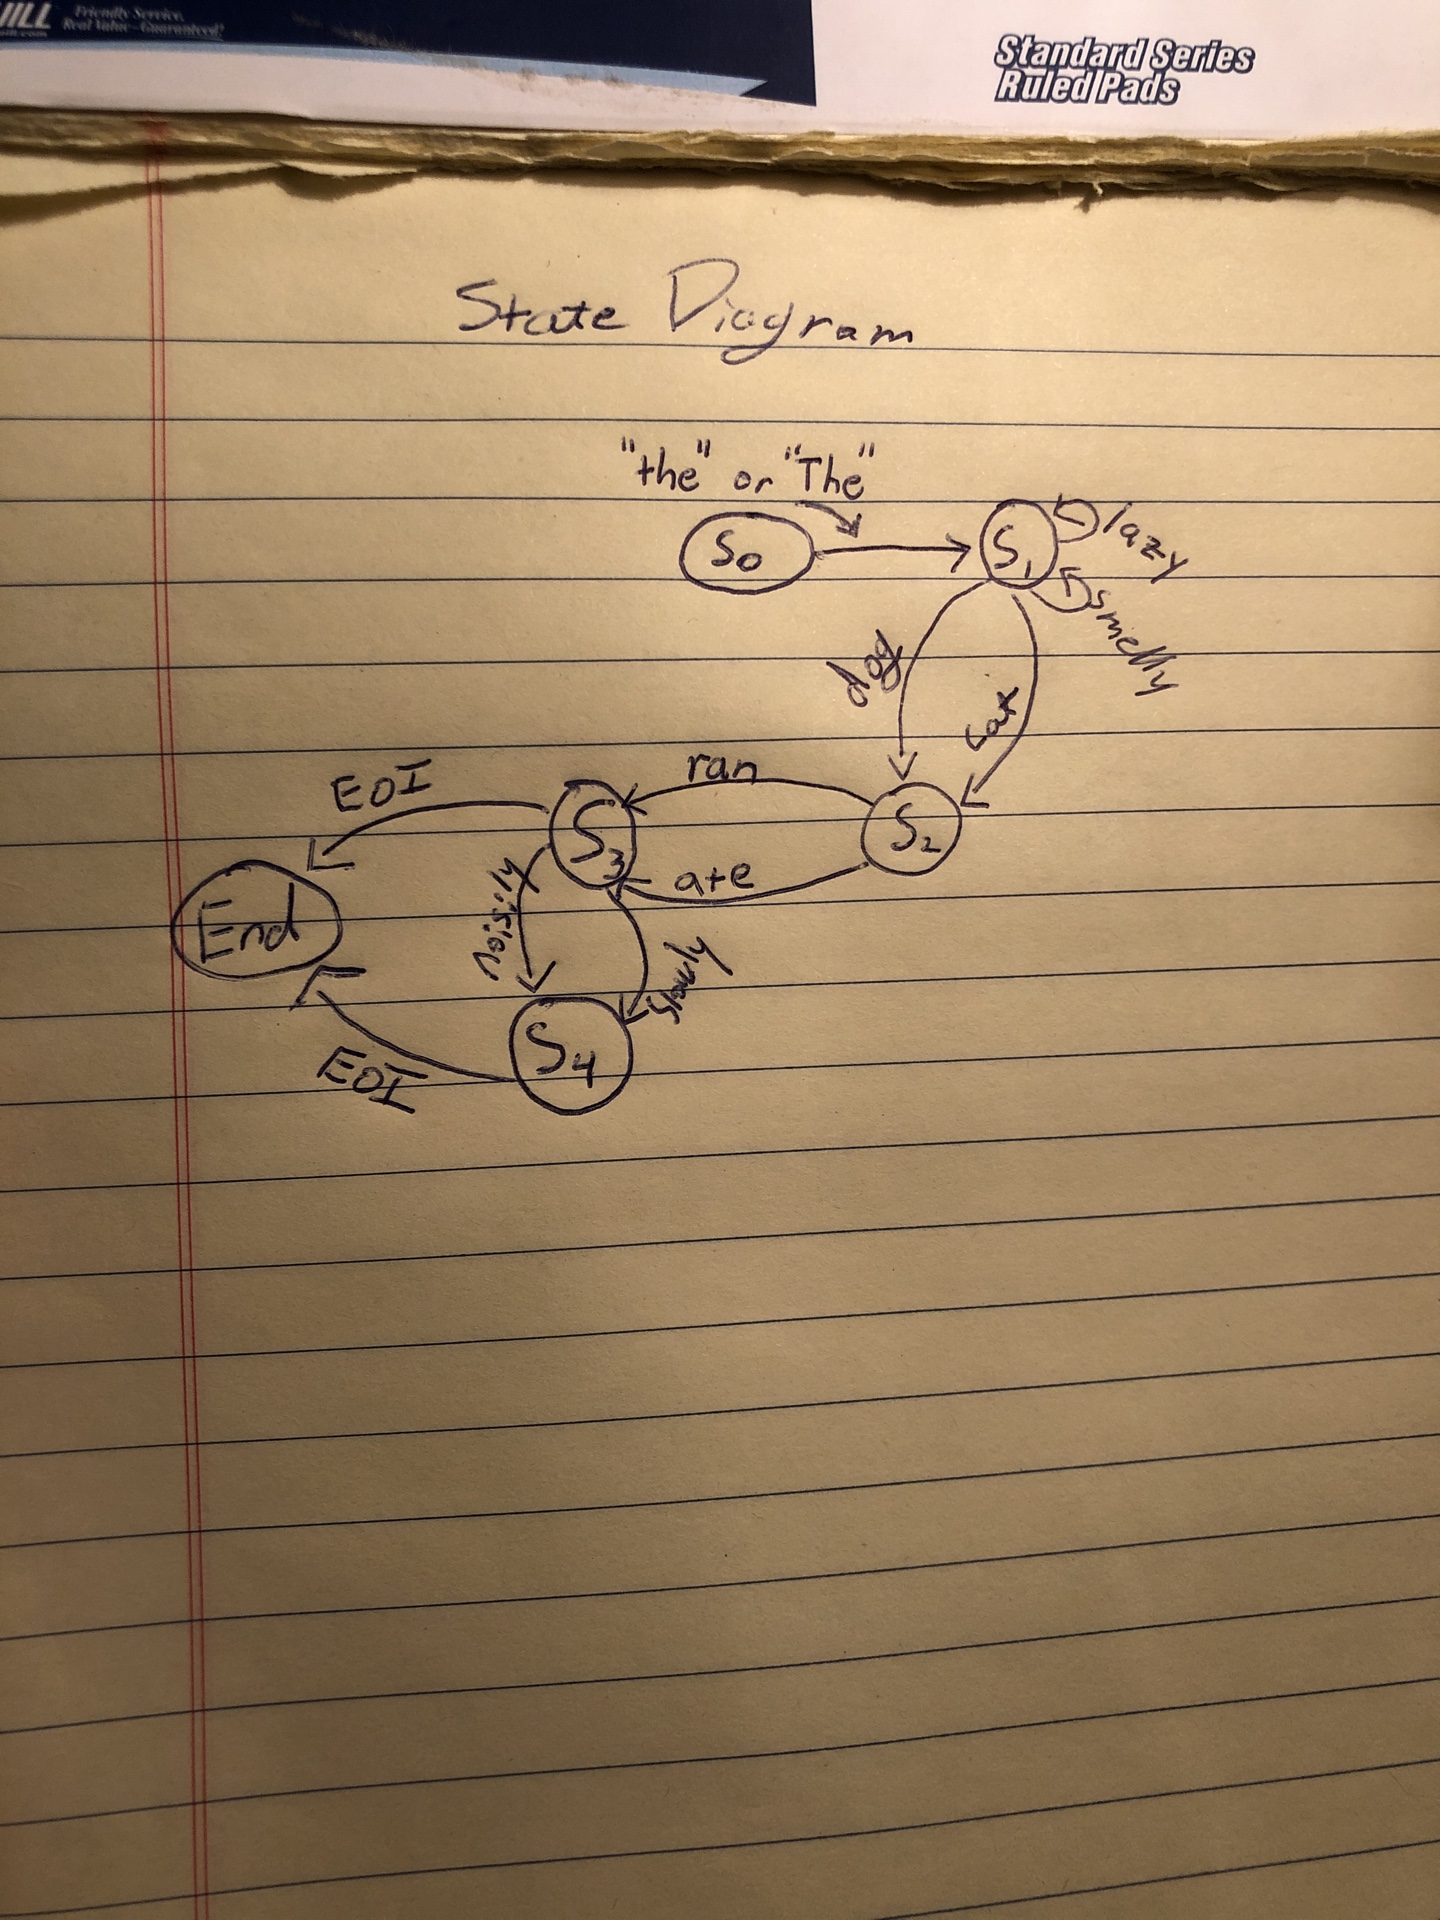 Friendly Service.
Real Value–Guaranteed!
Standard Series
Ruled Pads
State Diagram
"the" or "The"
S0
S1
lazy
smelly
dog
cat
EOI
ran
S3
S2
ate
noisily
End
slowly
S4
EOI